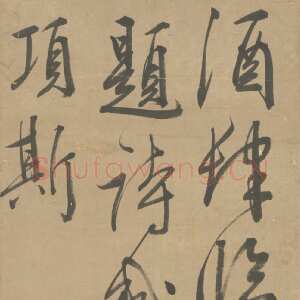 酒肆臨
題詩
項斯
Shufawang.cn